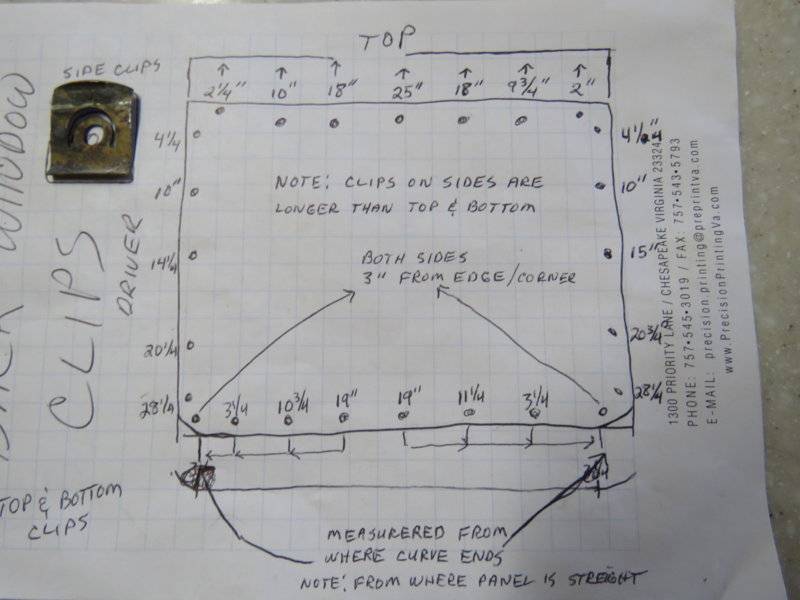 TOP
SIDE CLIPS
2 1/4" 10" 18" 25" 18" 9 3/4" 2"
4 1/4
4 1/2"
10"
10"
NOTE: CLIPS ON SIDES ARE
LONGER THAN TOP & BOTTOM
WINDOW
CLIPS
DRIVER
14 1/4
15"
BOTH SIDES
3" FROM EDGE/CORNER
20 1/4
20 3/4"
28 1/4
28 1/4
3 1/4 10 3/4 19" 19" 11 1/4 3 1/4
TOP & BOTTOM
CLIPS
MEASURERED FROM
WHERE CURVE ENDS
NOTE: FROM WHERE PANEL IS STREIGHT
1300 PRIORITY LANE / CHESAPEAKE VIRGINIA 23324
PHONE: 757•545•3019 / FAX: 757•543•5793
E-MAIL: precision.printing@preprintva.com
www.PrecisionPrintingVa.com